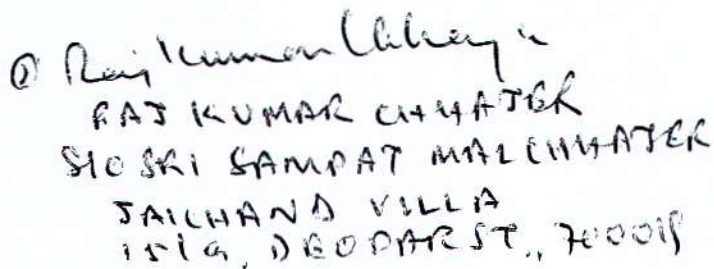 ② Raj Kumar Chhajer
RAJ KUMAR CHHAJER
S/O SRI SAMPAT MAL CHHAJER
JAICHAND VILLA
15/9, DEODAR ST., 700019